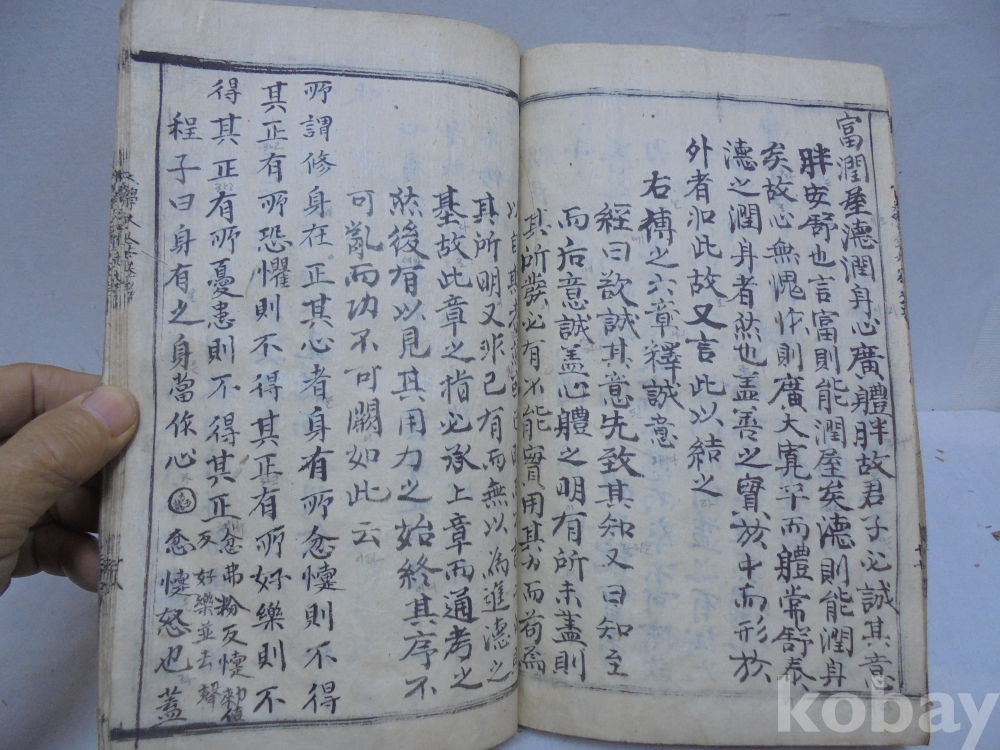 富潤屋德潤身心廣體胖故君子必誠其意
胖安舒也言富則能潤屋矣德則能潤身
矣故心無愧怍則廣大寬平而體常舒泰
德之潤身者然也盖善之實於中而形於
外者如此故又言此以結之
右傳之六章釋誠意
經曰欲誠其意先致其知又曰知至
而后意誠盖心體之明有所未盡則
其所發必有不能實用其力而苟焉
以自
其所明又非己有而無以為進德之
基故此章之指必承上章而通考之
然後有以見其用力之始終其序不
可亂而功不可闕如此云
所謂修身在正其心者身有所忿懥則不得
其正有所恐懼則不得其正有所好樂則不
得其正有所憂患則不得其正
忿弗粉反懥勑值
反好樂並去聲
程子曰身有之身當作心
忿懥怒也蓋
kobay